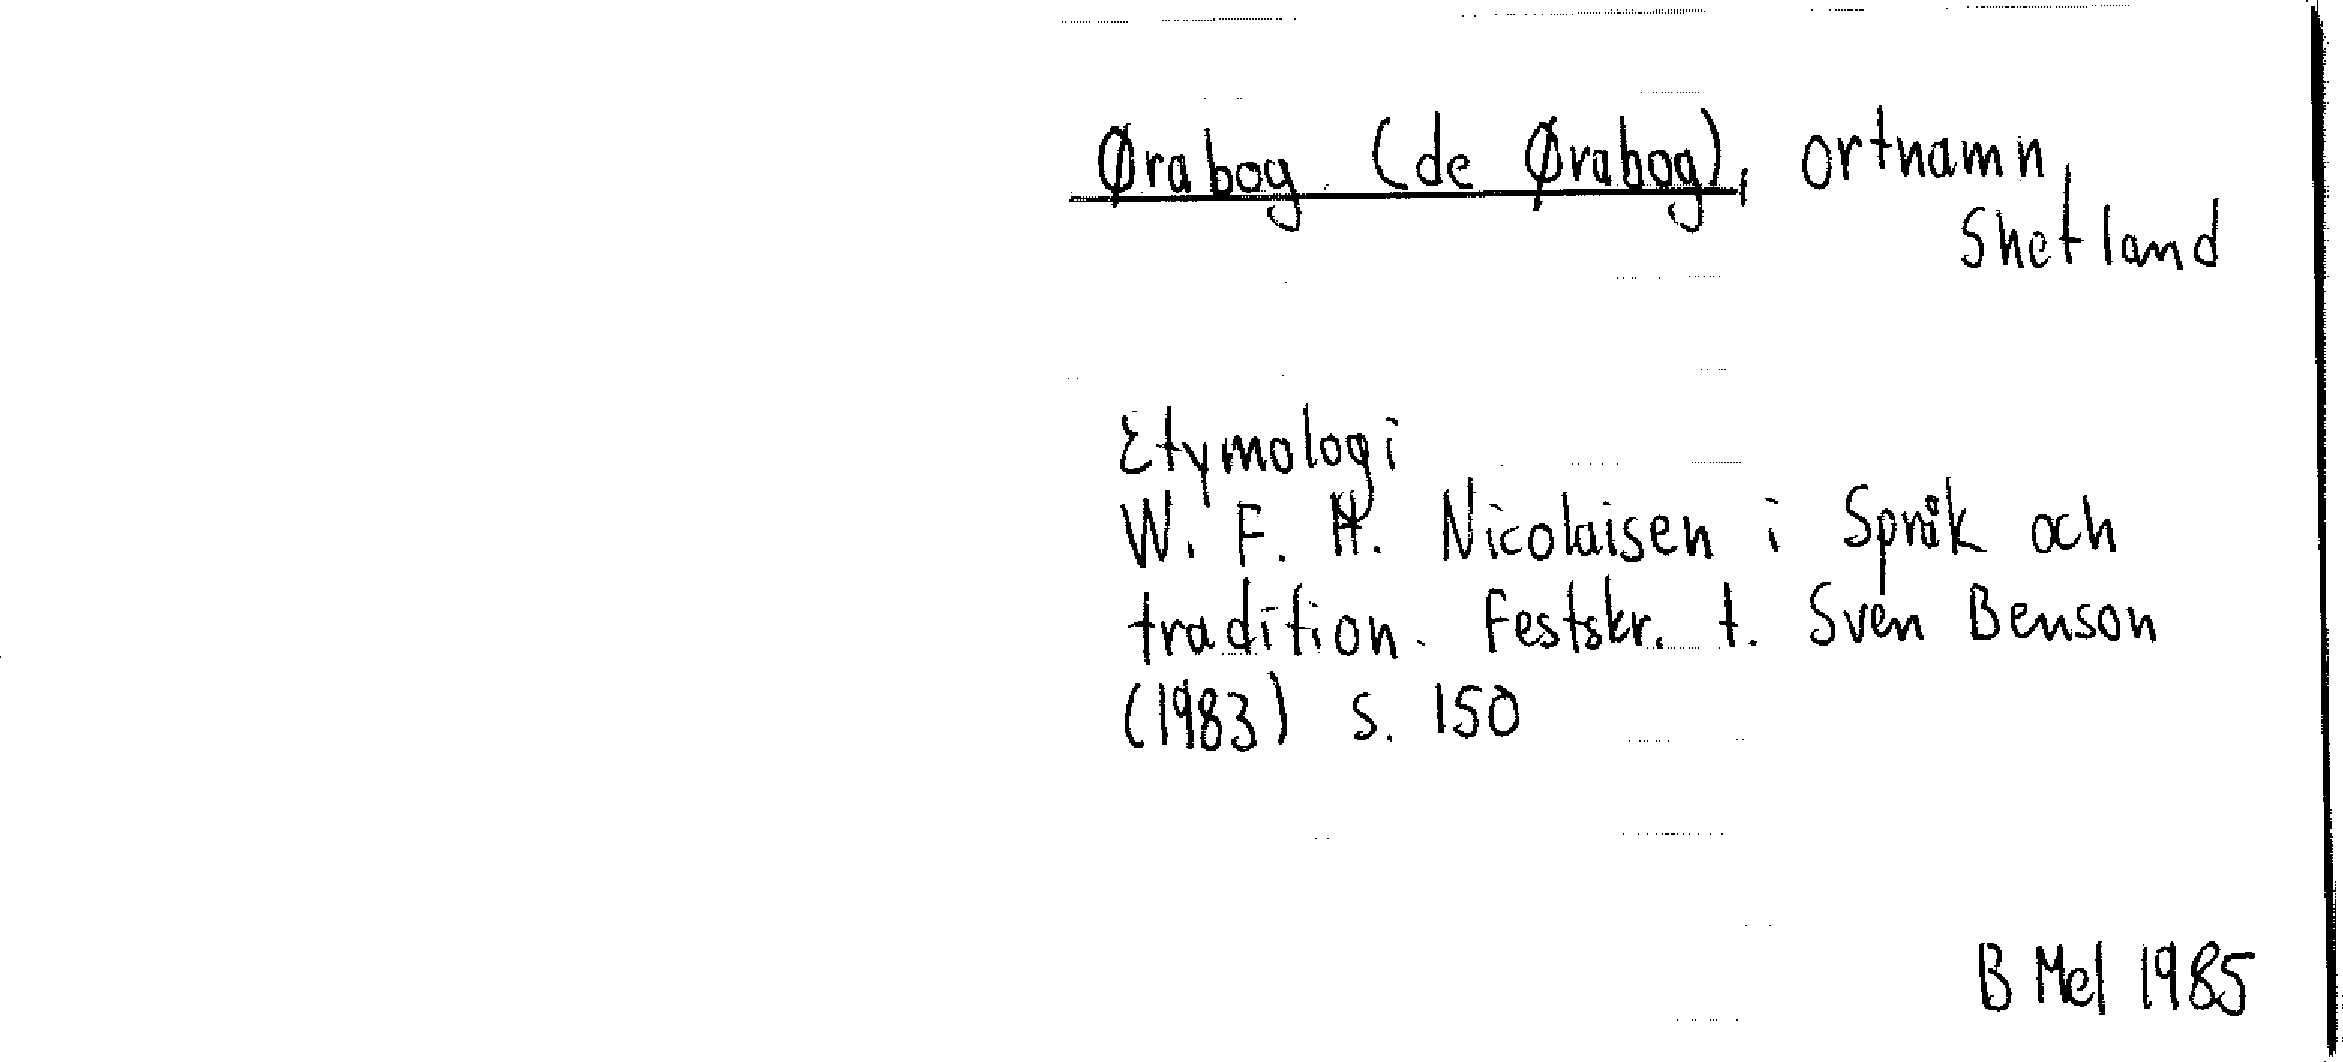 Ørabog (de Ørabog), ortnamn,
Shetland
Etymologi
W. F. H. Nicolaisen i Språk och
tradition. Festskr. t. Sven Benson
(1983) s. 150
B Mel 1985